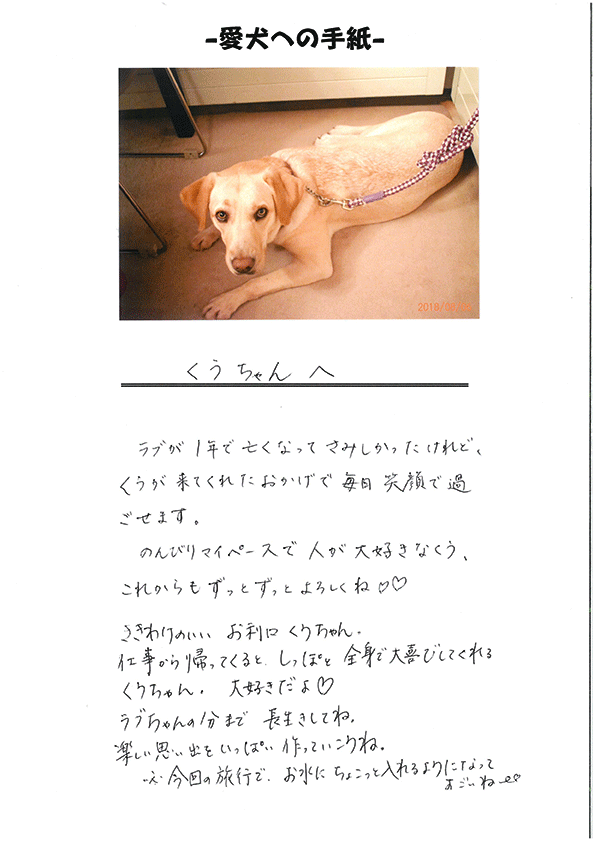 -愛犬への手紙-
2018
くうちゃんへ
ラブが1年で亡くなってさみしかったけれど、
くうが来てくれたおかげで毎日笑顔で過
ごせます。
のんびりマイペースで人が大好きなくう、
これからもずっとずっとよろしくね♡♡
ききわけのいい お利口くうちゃん。
仕事から帰ってくると、しっぽと全身で大喜びしてくれる
くうちゃん。大好きだよ♡
ラブちゃんの分まで 長生きしてね。
楽しい思い出をいっぱい作っていこうね。
今回の旅行で、お水にちょこっと入れるようになって
すごいね